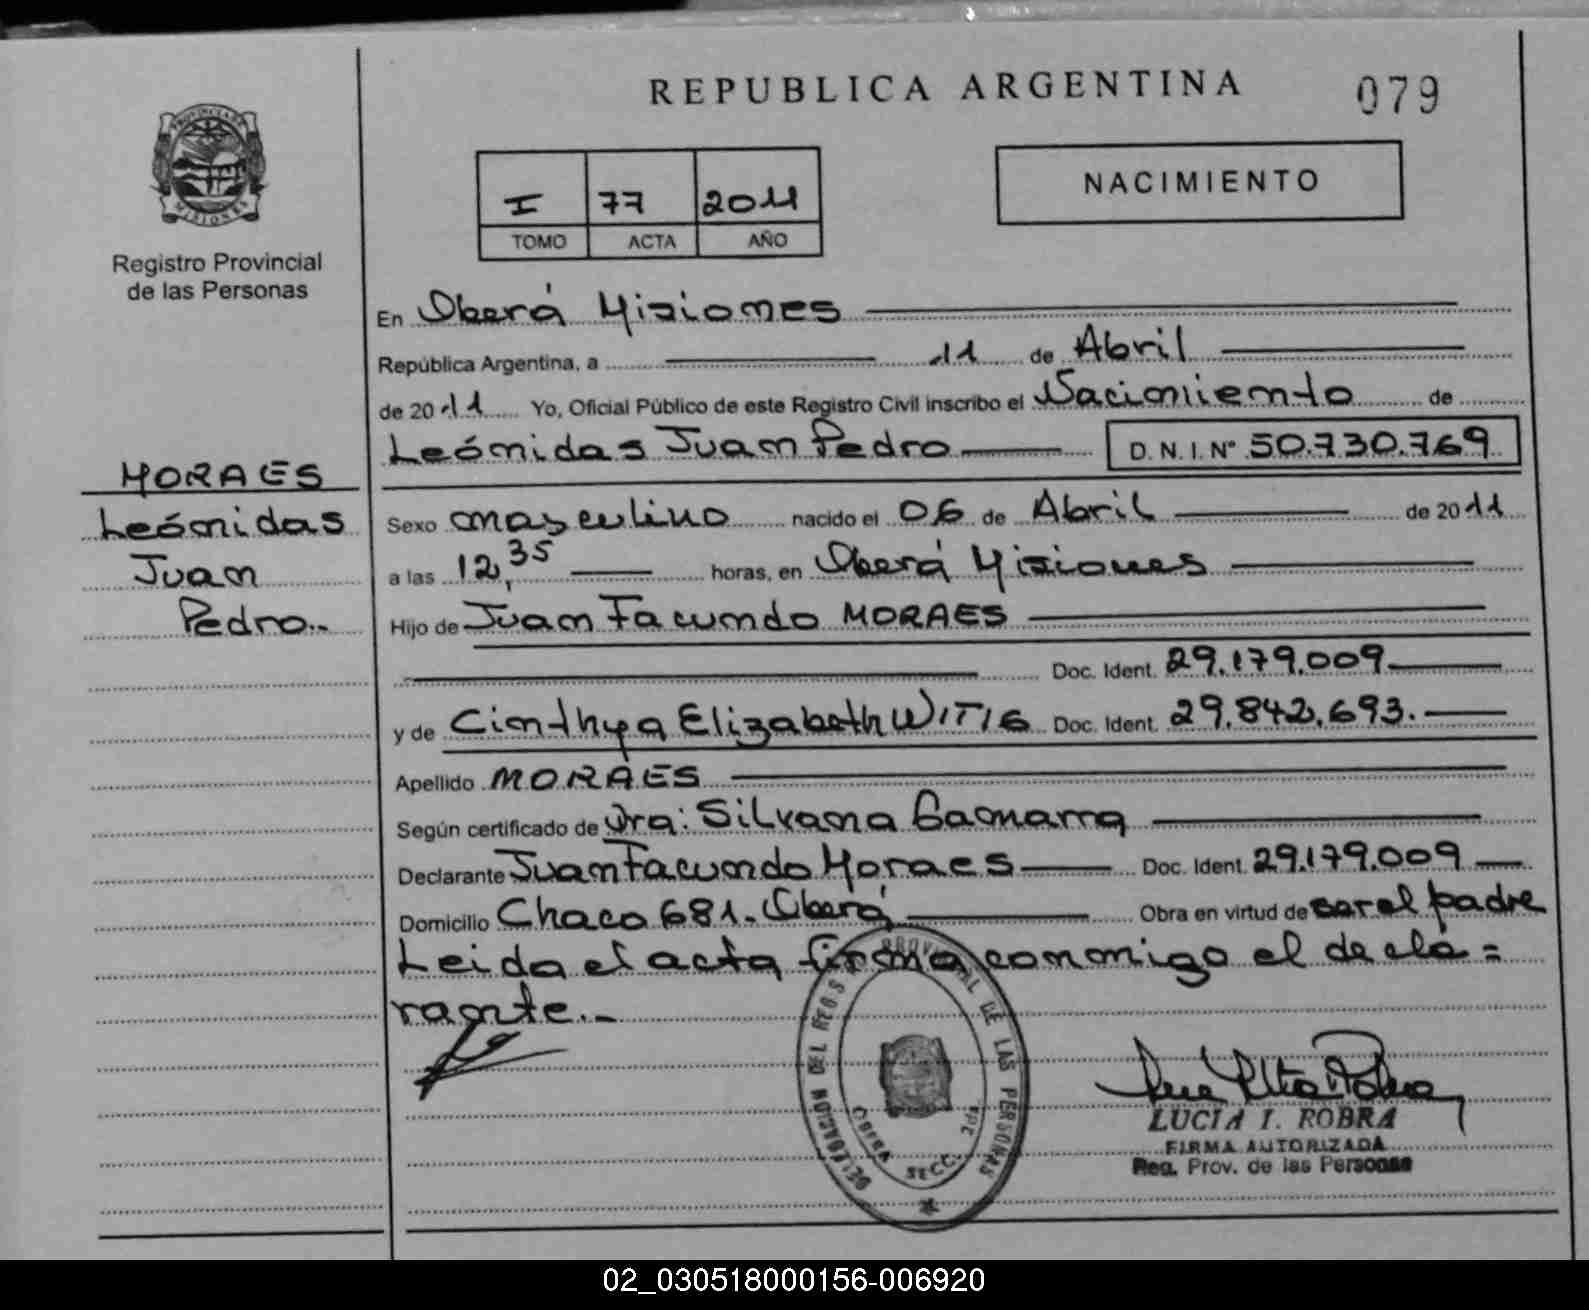 REPUBLICA ARGENTINA
079
PROVINCIA DE
MISIONES
Registro Provincial
de las Personas
I 77 2011
TOMO ACTA AÑO
NACIMIENTO
En Oberá Misiones
República Argentina, a 11 de Abril
de 2011 Yo, Oficial Público de este Registro Civil inscribo el Nacimiento de
Leónidas Juan Pedro D. N. I. Nº 50.730.769
MORAES
Leónidas
Juan
Pedro.-
Sexo masculino nacido el 06 de Abril de 2011
a las 12,35 horas, en Oberá Misiones
Hijo de Juan Facundo MORAES
Doc. Ident. 29.179.009
y de Cinthya Elizabeth WITIG Doc. Ident. 29.842.693.
Apellido MORAES
Según certificado de Dra: Silvana Gamarra
Declarante Juan Facundo Moraes Doc. Ident. 29.179.009
Domicilio Chaco 681. Oberá Obra en virtud de ser el padre
Leida el acta firma conmigo el decla=
rante.-
DELEGACION DEL REG. PROVINCIAL DE LAS PERSONAS
OBERA SECC. 2da.
LUCIA I. ROBRA
FIRMA AUTORIZADA
Reg. Prov. de las Personas
02_030518000156-006920